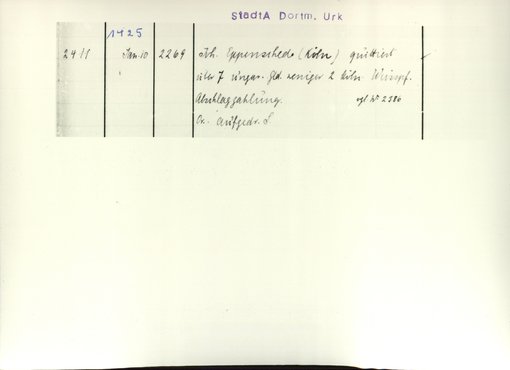 StadtA Dortm. Urk
1425
2411 Jan. 10 2269 Joh. Eppenschede (Köln) quittiert
über 7 ungar. Gld weniger 2 köln.
Abschlagzahlung. vgl Nr 2386
Or. Aufgedr. S.